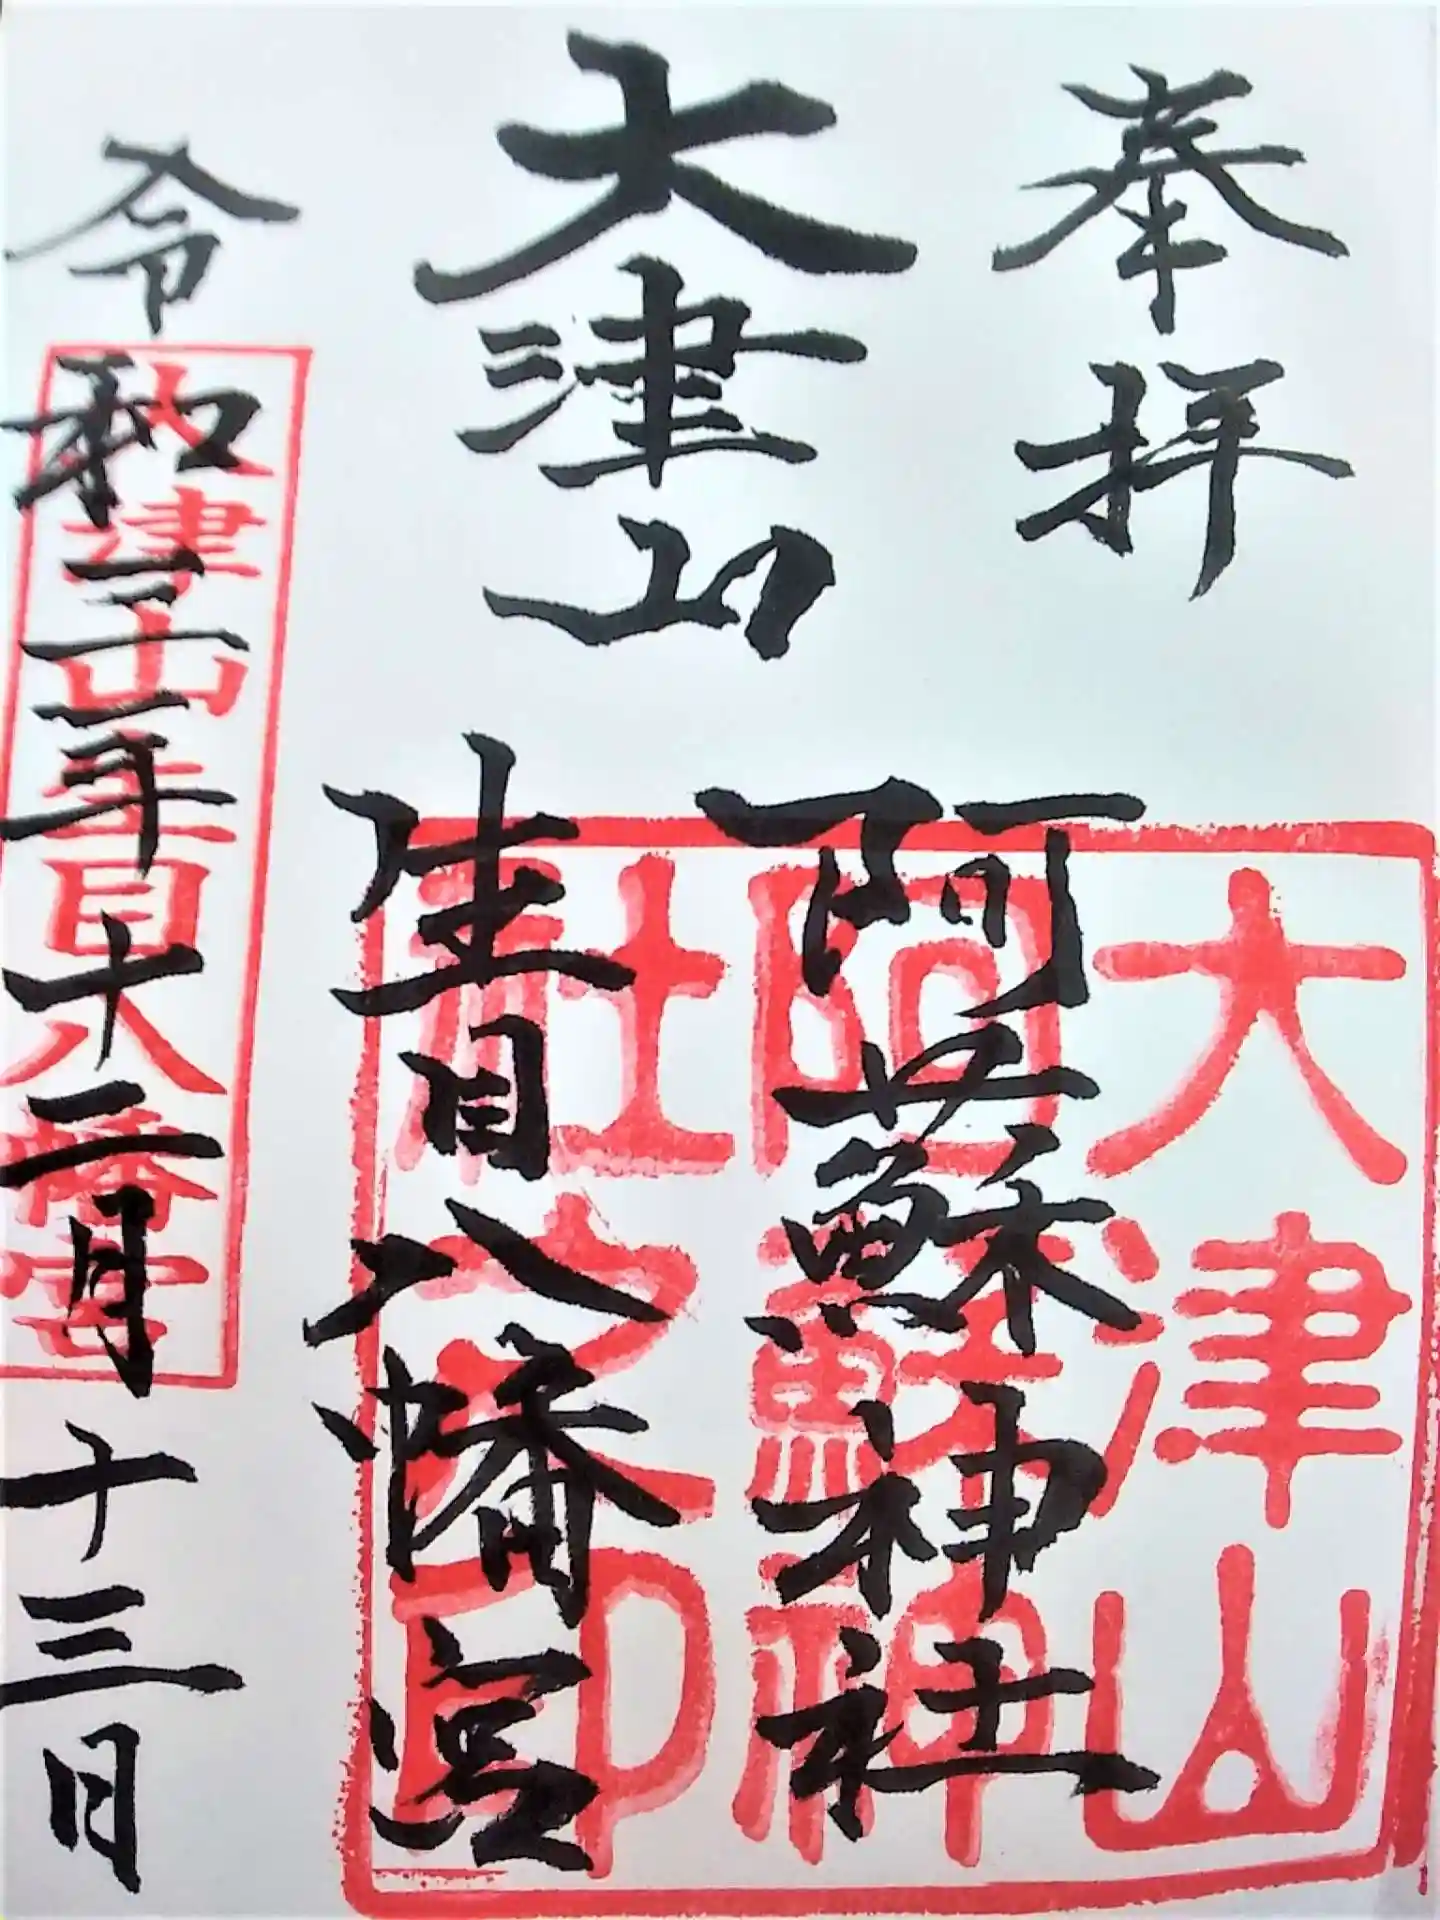 奉拝
大津山
阿蘇神社
生目八幡宮
令和三年十二月十三日
大津山
阿蘇神
社之印
大津山生目八幡宮